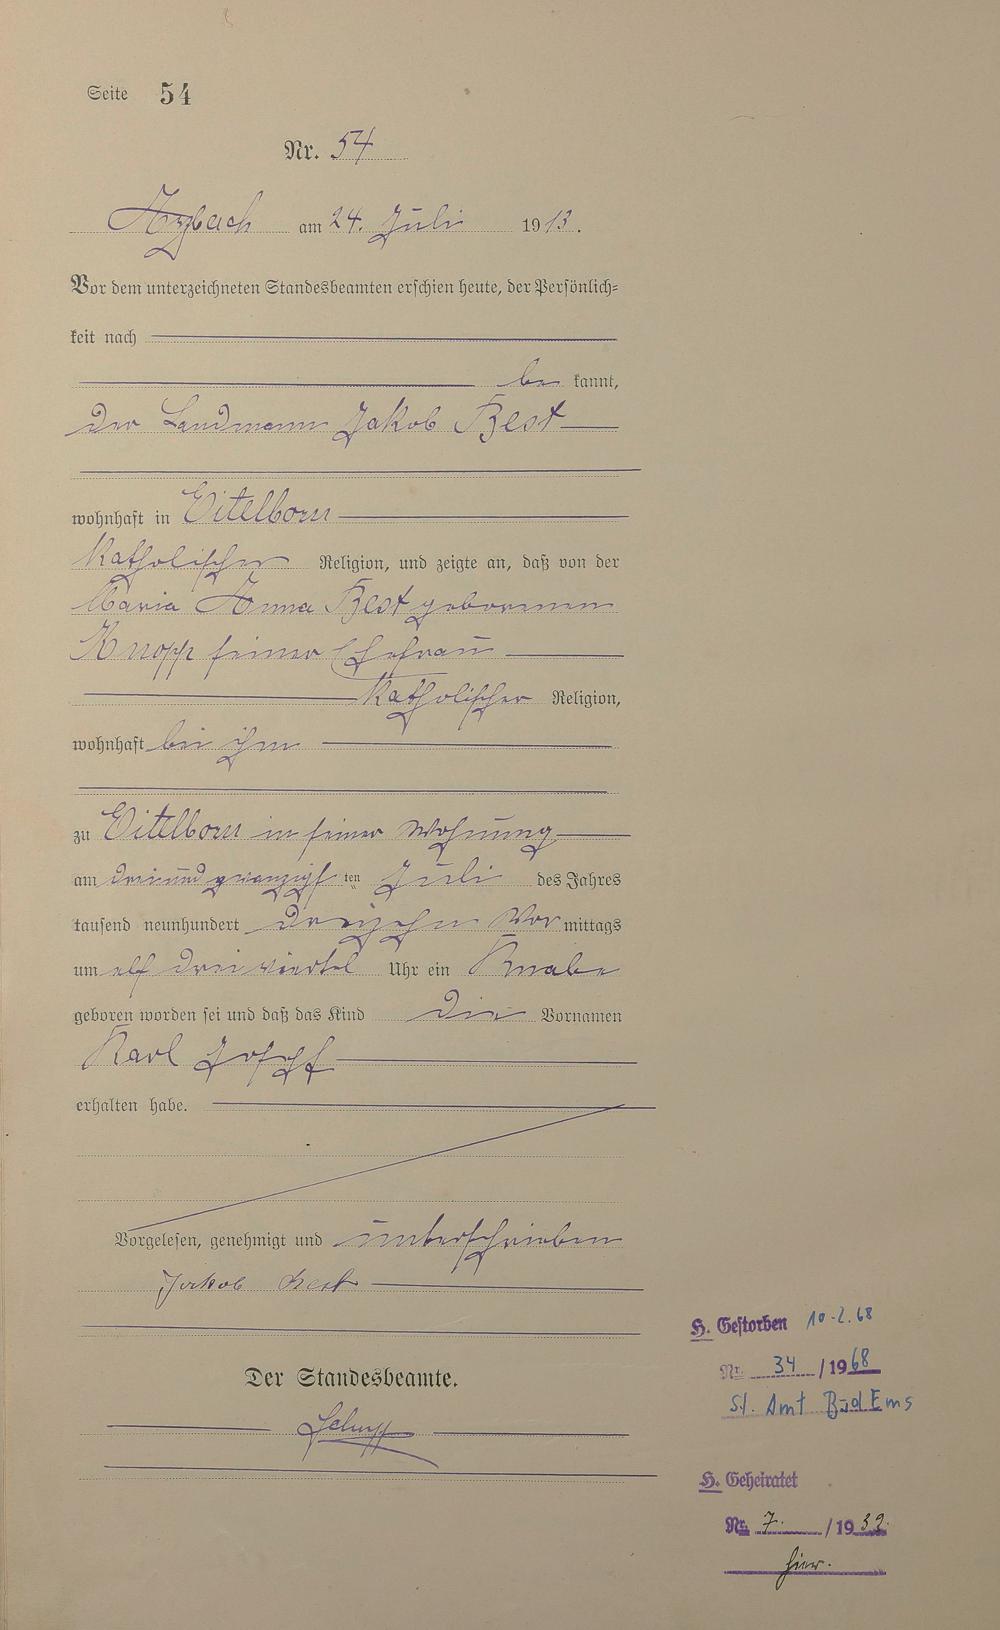 Seite 54
Nr. 54
Arzbach am 24. Juli 1913.
Vor dem unterzeichneten Standesbeamten erschien heute, der Persönlich=
keit nach
be kannt,
der Landmann Jakob Best
wohnhaft in Eitelborn
katholischer Religion, und zeigte an, daß von der
Maria Anna Best geborenen
Knopp seiner Ehefrau
katholischer Religion,
wohnhaft bei ihm
zu Eitelborn in seiner Wohnung
am dreiundzwanzigsten Juli des Jahres
tausend neunhundert dreizehn Vor mittags
um elf drei viertel Uhr ein Knabe
geboren worden sei und daß das Kind die Vornamen
Karl Joseph
erhalten habe.
Vorgelesen, genehmigt und unterschrieben
Jakob Best
Der Standesbeamte.
H. Gestorben 10.2.68
Nr. 34 /1968
St. Amt Bad Ems
H. Geheiratet
Nr. 7. /1939.
hier.